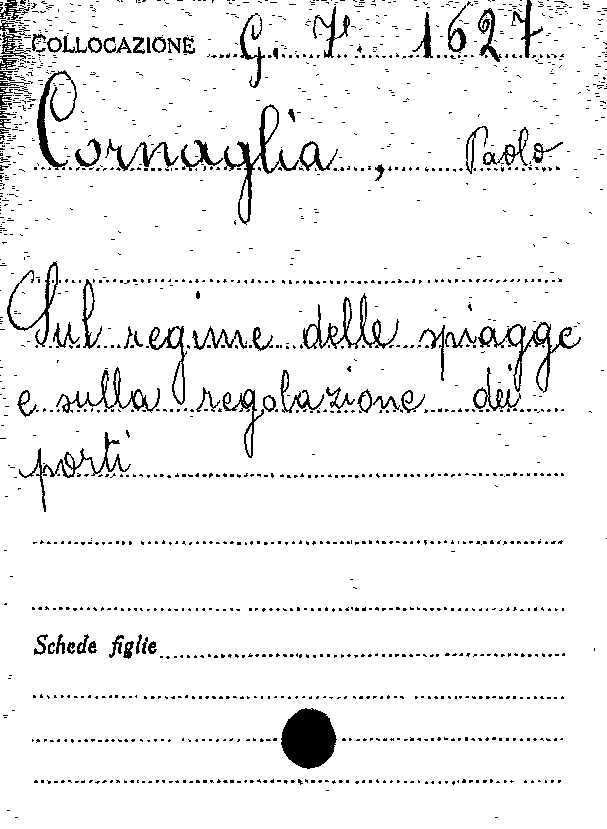 COLLOCAZIONE G. 7e. 1627
Cornaglia, Paolo
Sul regime delle spiagge
e sulla regolazione dei
porti
Schede figlie